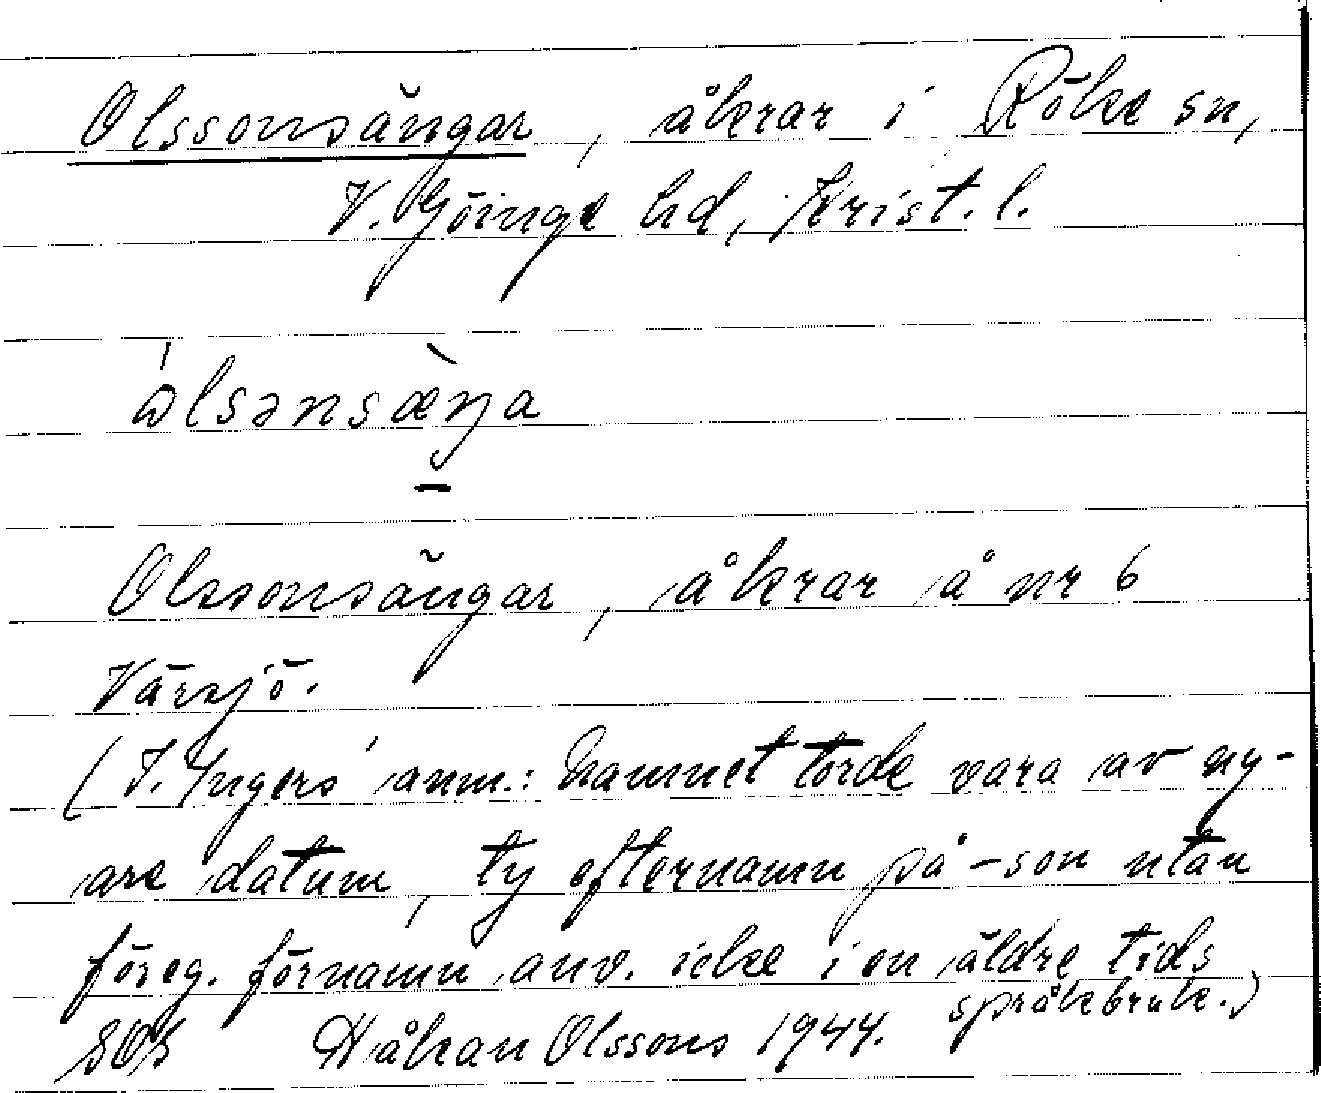 Olssonsängar, åkrar i Röke sn,
V. Göinge hd, Krist. l.
Olssonsängar, åkrar å nr 6
Värsjö.
(I. Ingers' anm.: Namnet torde vara av ny-
are datum, ty efternamn på -son utan
föreg. förnamn anv. icke i en äldre tids
språkbruk.)
Håkan Olssons 1944.